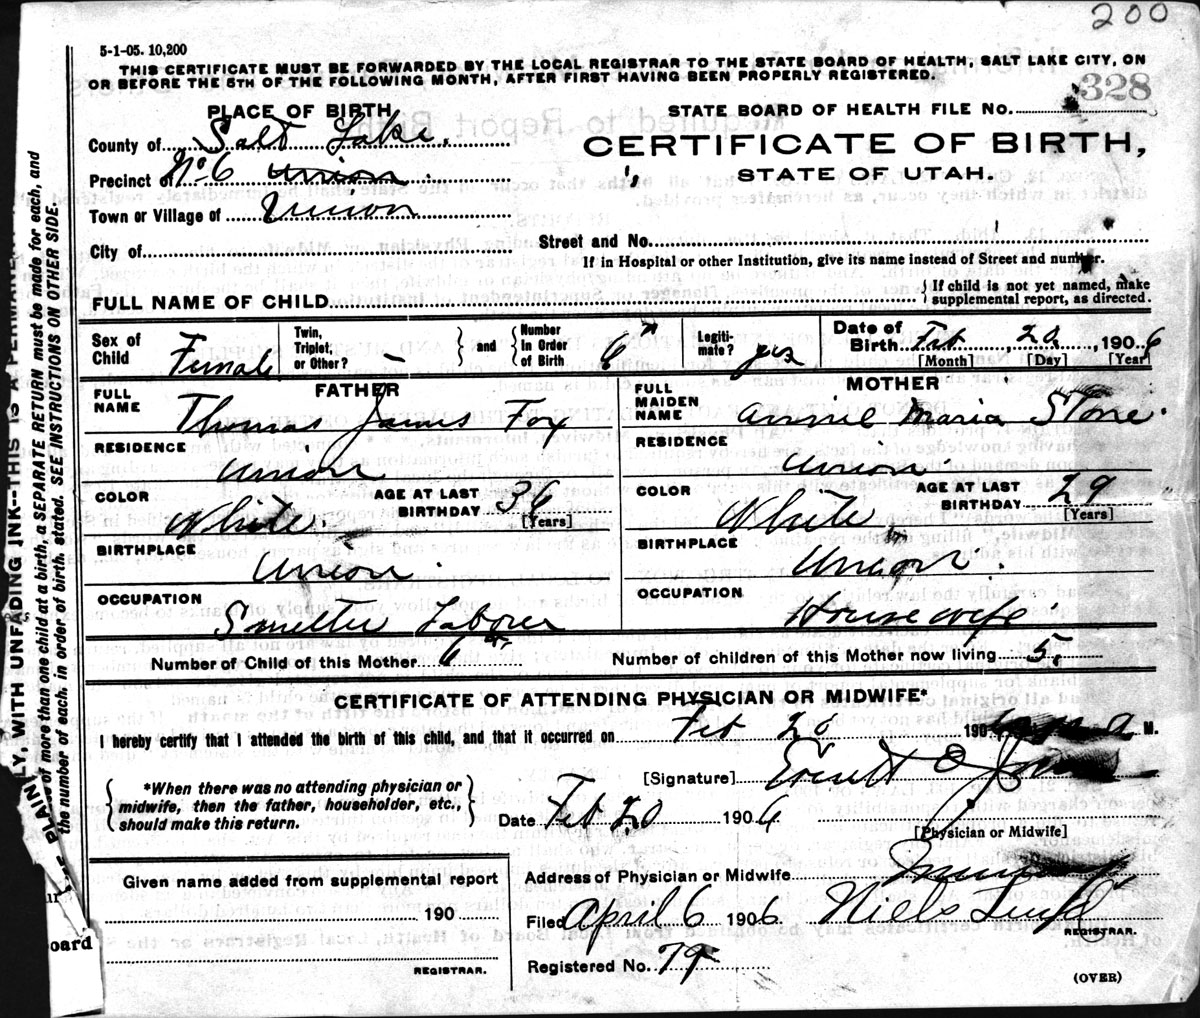 200
5-1-05. 10,200
THIS CERTIFICATE MUST BE FORWARDED BY THE LOCAL REGISTRAR TO THE STATE BOARD OF HEALTH, SALT LAKE CITY, ON
OR BEFORE THE 5TH OF THE FOLLOWING MONTH, AFTER FIRST HAVING BEEN PROPERLY REGISTERED.
PLACE OF BIRTH
STATE BOARD OF HEALTH FILE NO. 328
County of Salt Lake.
CERTIFICATE OF BIRTH,
Precinct of No. 6 Union
STATE OF UTAH.
Town or Village of Union
City of
Street and No.
If in Hospital or other Institution, give its name instead of Street and number.
FULL NAME OF CHILD
If child is not yet named, make
supplemental report, as directed.
Sex of Child Female
Twin, Triplet, or Other? –
and
Number in Order of Birth 6th
Legitimate? yes
Date of Birth Feb 20, 1906
[Month] [Day] [Year]
FATHER
FULL NAME Thomas James Fox
RESIDENCE Union
COLOR White
AGE AT LAST BIRTHDAY 36 [Years]
BIRTHPLACE Union
OCCUPATION Smelter Laborer
MOTHER
FULL MAIDEN NAME Annie Maria Stone
RESIDENCE Union
COLOR White
AGE AT LAST BIRTHDAY 29 [Years]
BIRTHPLACE Union
OCCUPATION Housewife
Number of Child of this Mother 6th
Number of children of this Mother now living 5.
CERTIFICATE OF ATTENDING PHYSICIAN OR MIDWIFE*
I hereby certify that I attended the birth of this child, and that it occurred on Feb 20 190 M.
*When there was no attending physician or
midwife, then the father, householder, etc.,
should make this return.
[Signature]
Date Feb 20 1906
[Physician or Midwife]
Given name added from supplemental report
190
REGISTRAR.
Address of Physician or Midwife Murray
Filed April 6 1906 Niels
REGISTRAR.
Registered No. 79
(OVER)
LY, WITH UNFADING INK--THIS IS A PERMANE
of more than one child at a birth, a SEPARATE RETURN must be made for each, and
the number of each, in order of birth, stated. SEE INSTRUCTIONS ON OTHER SIDE.
oard